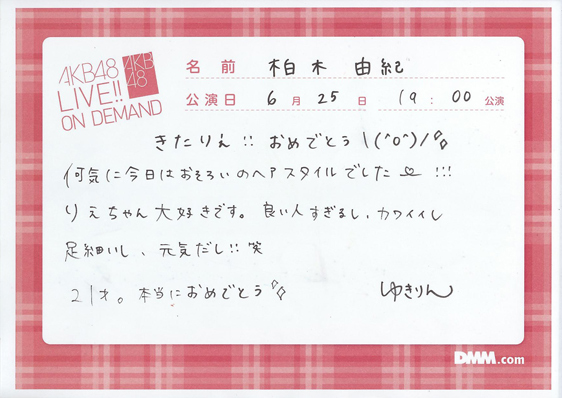 AKB48
LIVE!!
ON DEMAND
AKB
48
名前 柏木 由紀
公演日 6月25日 19:00公演
きたりえ!! おめでとう\(^o^)/
何気に今日はおそろいのヘアスタイルでした♡!!!
りえちゃん大好きです。良い人すぎるし、カワイイし
足細いし、元気だし!!笑
21才。本当におめでとう
ゆきりん
DMM.com